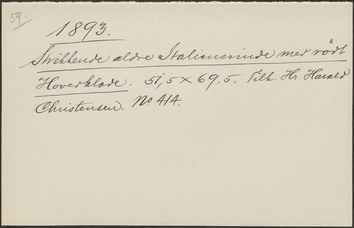 59.
1893.
Strikkende ældre Italienerinde med rødt
Hovedklæde. 51,5 × 69,5. Tilh. Hr. Harald
Christensen. No 414.